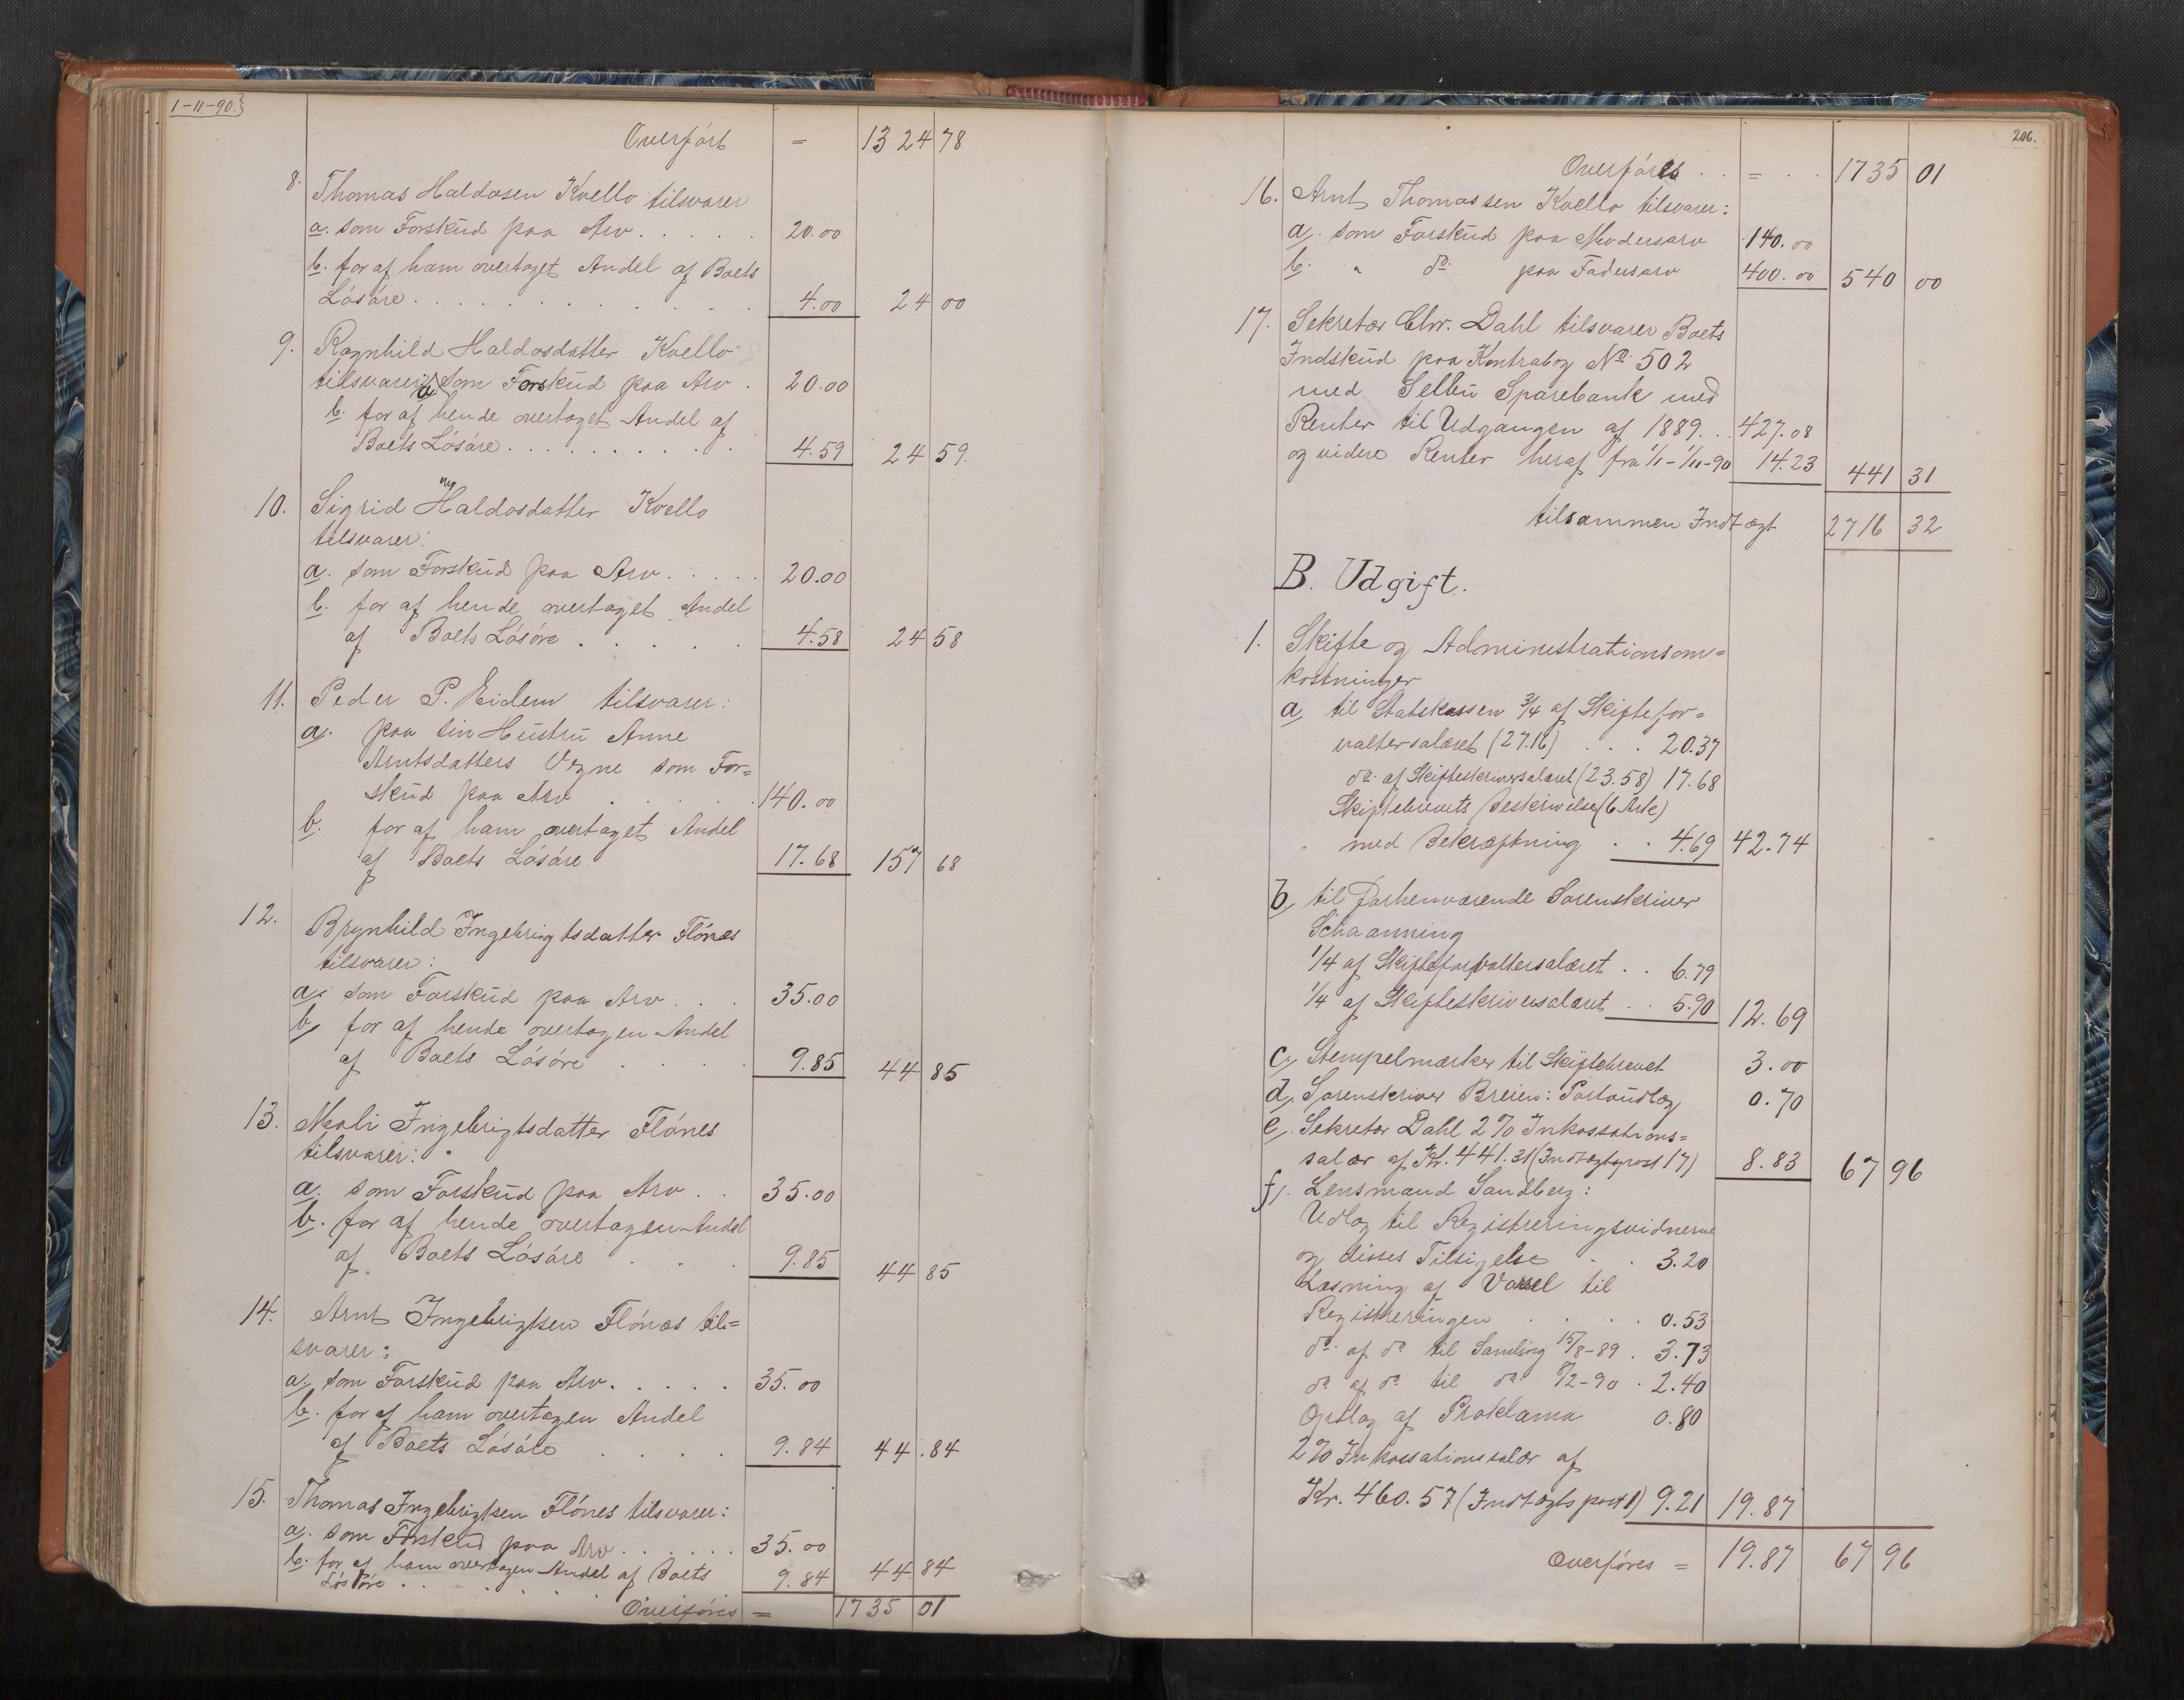 1-11-90.
Overført = 1324 78
8. Thomas Haldosen Kvello tilsvarer
a. som Forskud paa Arv . . . . . 20.00
b. for af ham overtaget Andel af Boets
Løsøre . . . . . . . . . . 4.00 24 00
9. Ragnhild Haldosdatter Kvello
tilsvarer: a. som Forskud paa Arv . 20.00
b. for af hende overtaget Andel af
Boets Løsøre . . . . . . . . . 4.59 24 59.
10. Sigrid ny Haldosdatter Kvello
tilsvarer:
a. som Forskud paa Arv . . . . . 20.00
b. for af hende overtaget Andel
af Boets Løsøre . . . . . 4.58 24 58
11. Peder P. Eidem tilsvarer:
a. paa sin Hustru Anne
Arntsdatters Vegne som For=
skud paa Arv . . . . . 140.00
b. for af ham overtaget Andel
af Boets Løsøre 17.68 157 68
12. Brynhild Ingebrigtsdatter Flønes
tilsvarer:
a. som Forskud paa Arv . . . 35.00
b. for af hende overtagen Andel
af Boets Løsøre . . . . 9.85 44 85
13. Marli Ingebrigtsdatter Flønes
tilsvarer:
a. som Forskud paa Arv . . 35.00
b. for af hende overtagen Andel
af Boets Løsøre . . . 9.85 44 85
14. Arnt Ingebrigtsen Flønes til=
svarer:
a. som Forskud paa Arv . . . . . 35.00
b. for af ham overtagen Andel
af Boets Løsøre . . . . 9.84 44.84
15. Thomas Ingebrigtsen Flønes tilsvarer:
a. som Forskud paa Arv . . . . . . 35.00
b. for af ham overtagen Andel af Boets
Løsøre . . . . . . 9.84 44 84
Overføres = 1735 01
206.
Overføres . . = . . 1735 01
16. Arnt Thomassen Kvello tilsvarer:
a. som Forskud paa Modersarv 140.00
b. " do. paa Fadersarv 400.00 540 00
17. Sekretær Chr. Dahl tilsvarer Boets
Indskud paa Kontrabog No. 502
med Selbu Sparebank med
Renter til Udgangen af 1889 . . 427.08
og videre Renter heraf fra 1/1-1/11-90 14.23 441 31
tilsammen Indtægt 2716 32
B. Udgift.
1. Skifte og Administrationsom=
kostninger
a. til Statskassen 3/4 af Skiftefor=
valtersalæret (27.16) . . . 20.37
do. af Skifteskriversalæret (23.58) 17.68
Skiftebrevets Beskrivelse (6 Ark)
med Bekræftning . . 4.69 42.74
b. til forhenværende Sorenskriver
Schaanning
1/4 af Skifteforvaltersalæret . . 6.79
1/4 af Skifteskriversalæret . . 5.90 12.69
c. Stempelmærker til Skiftebrevet 3.00
d. Sorenskriver Breien: Portoudlæg 0.70
e. Sekretær Dahl 2% Inkassations=
salær af Kr. 441.31 (Indtægtspost 17) 8.83 67 96
f. Lensmand Sandberg:
Udlæg til Registreringsvidnerne
og disses Tilsigelse . . 3.20
Læsning af Varsel til
Registreringen . . . . 0.53
do. af do til Samling 15/8-89 . 3.73
do af do til do 8/2-90 . 2.40
Opslag af Proklama 0.80
2% Inkassationssalær af
Kr. 460.57 (Indtægtspost 1) 9.21 19.87
Overføres = 19.87 67 96